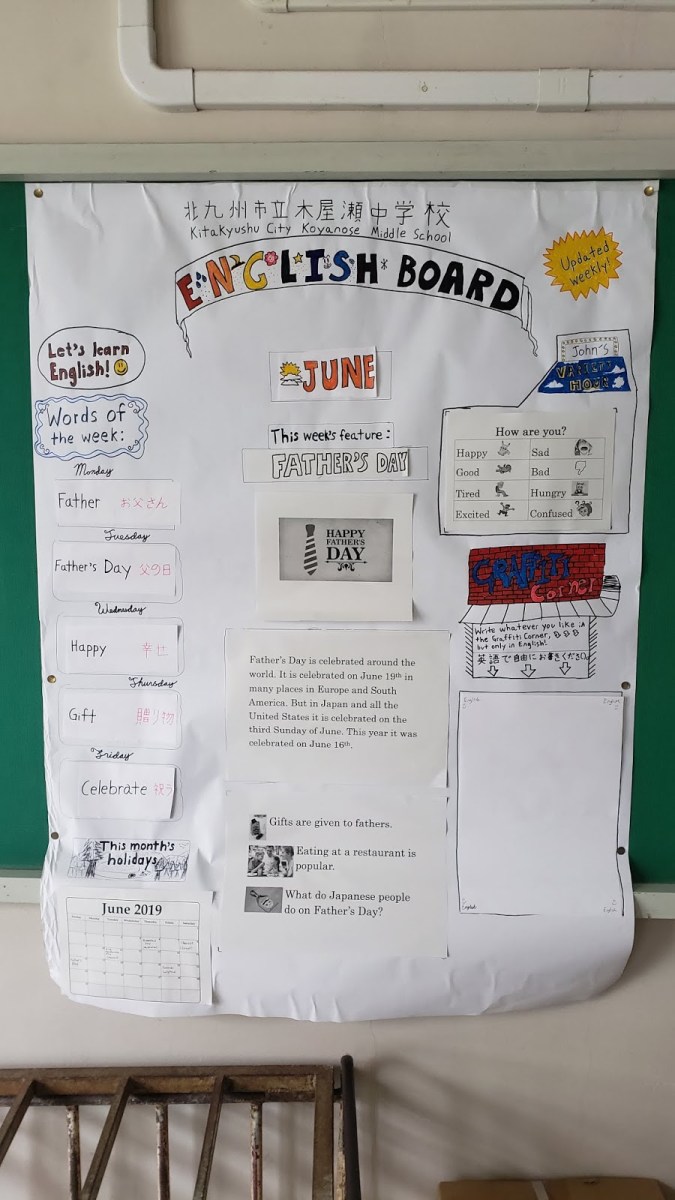 北九州市立木屋瀬中学校
Kitakyushu City Koyanose Middle School
ENGLISH BOARD
Updated
weekly!
Let's learn
English!
Words of
the week:
Monday
Father お父さん
Tuesday
Father's Day 父の日
Wednesday
Happy 幸せ
Thursday
Gift 贈り物
Friday
Celebrate 祝う
This month's
holidays
June 2019
JUNE
This week's feature:
FATHER'S DAY
HAPPY
FATHER'S
DAY
Father's Day is celebrated around the
world. It is celebrated on June 19th in
many places in Europe and South
America. But in Japan and all the
United States it is celebrated on the
third Sunday of June. This year it was
celebrated on June 16th.
Gifts are given to fathers.
Eating at a restaurant is
popular.
What do Japanese people
do on Father's Day?
John's
VARIETY
HOUR
How are you?
Happy Sad
Good Bad
Tired Hungry
Excited Confused
GRAFFITI
Corner
Write whatever you like in
the Graffiti Corner,
but only in English!
英語で自由にお書きください。
English English
English English